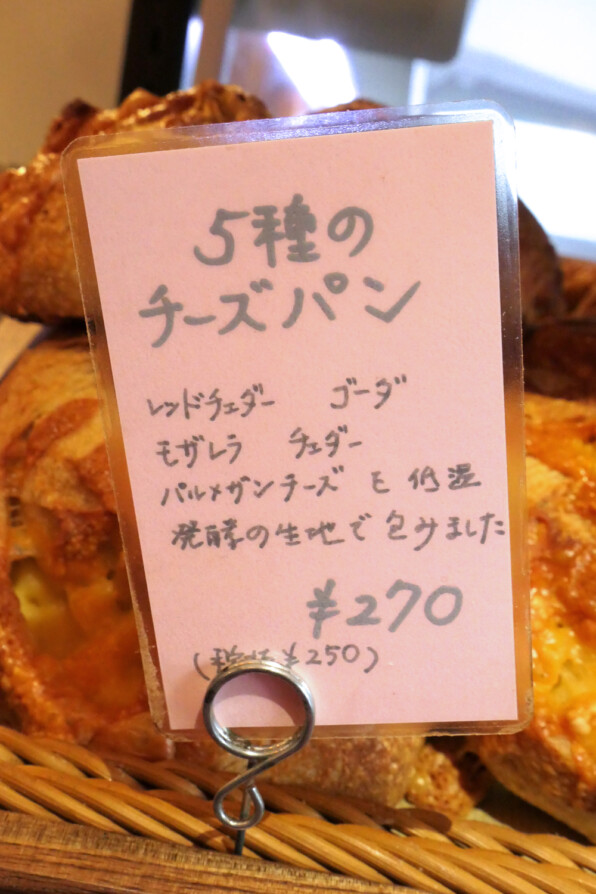 5種の
チーズパン
レッドチェダー ゴーダ
モザレラ チェダー
パルメザンチーズ を 低温
発酵の生地で包みました
¥270
(税抜¥250)